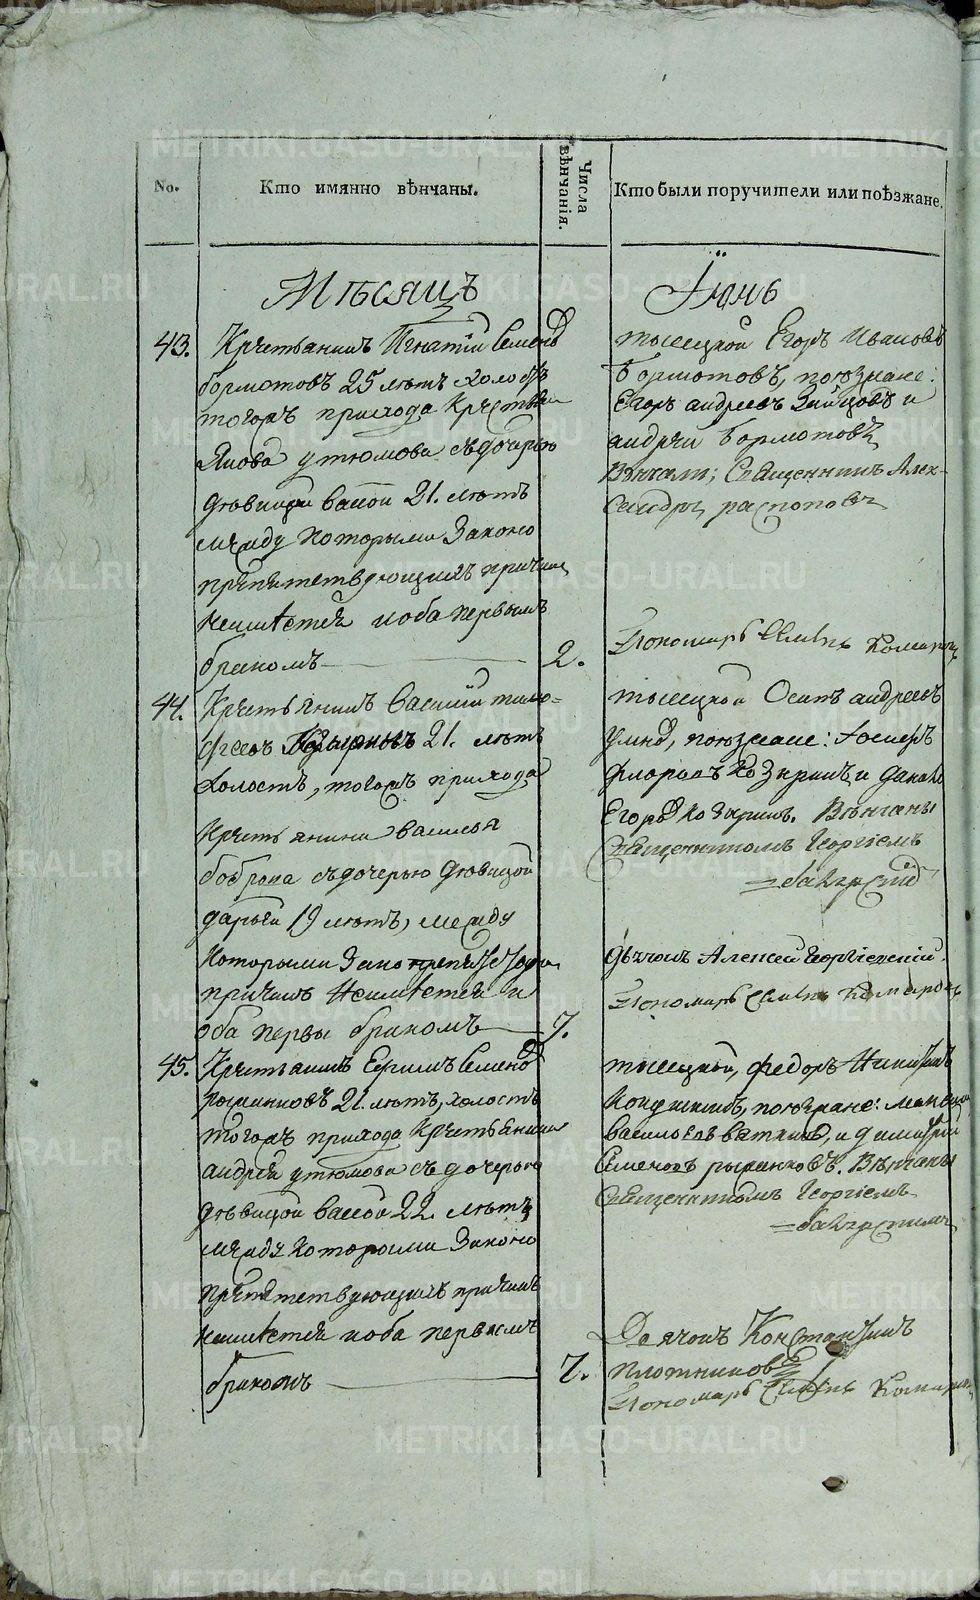 No.
Кто имянно вѣнчаны.
Числа вѣнчанія.
Кто были поручители или поѣзжане.
Мѣсяцъ
Іюнь
43.
Крестьянинъ Игнатій Семеновъ
бормотовъ 25 лѣтъ холостъ
тогожъ прихода Крестьянина
Якова утюмова съ дочерью
дѣвицей васой 21. лѣтъ
между которыми Законо
препятствующихъ причинъ
неимѣется и оба первымъ
бракомъ
2.
тысецкой Егоръ Ивановъ
Бормотовъ, поюзжане:
Егоръ андреевъ Зайцовъ и
андрей бормотовъ
Вѣнчали; Священникъ Алек-
сандръ распоповъ
Пономарь Семенъ Комаровъ
44.
Крестьянинъ василій тимо-
феевъ 21. лѣтъ
холостъ, тогожъ прихода
Крестьянина василья
боброва съ дочерью дѣвицой
дарьей 19 лѣтъ, между
которыми
причинъ Неимѣется и
оба первы бракомъ
7.
тысецкой Осипъ андреевъ
поюзжане:
и данило
Егоровъ Козыринъ. Вѣнчаны
Священникомъ Георгіемъ
дьячокъ Алексей Георгіевскій.
Пономарь Семенъ Комаровъ
45.
Крестьянинъ Ефимъ Семеновъ
рышниковъ 21. лѣтъ, холостъ
тогожъ прихода Крестьянина
андрея утюмова съ дочерью
дѣвицой васой 22. лѣтъ
между которыми Законо
препятствующихъ причинъ
неимѣется и оба первымъ
бракомъ
7.
тысецкой, федоръ Никитинъ
поюзжане:
васильевъ вяткинъ, и димитрій
Семеновъ рышниковъ. Вѣнчаны
Священникомъ Георгіемъ
Дьячокъ Константинъ
плотниковъ
Пономарь Семенъ Комаровъ
METRIKI.GASO-URAL.RU